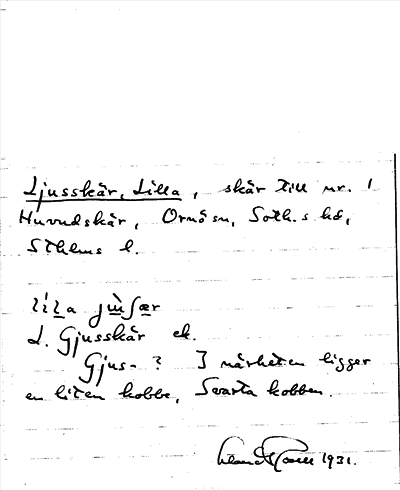 Ljusskär, Lilla, skär till nr. 1
Huvudskär, Ornö sn, Soth.s hd,
Sthlms l.
lilla
L. Gjusskär ek.
Gjus- ? I närheten ligger
en liten kobbe, Svarta kobben.
1931.